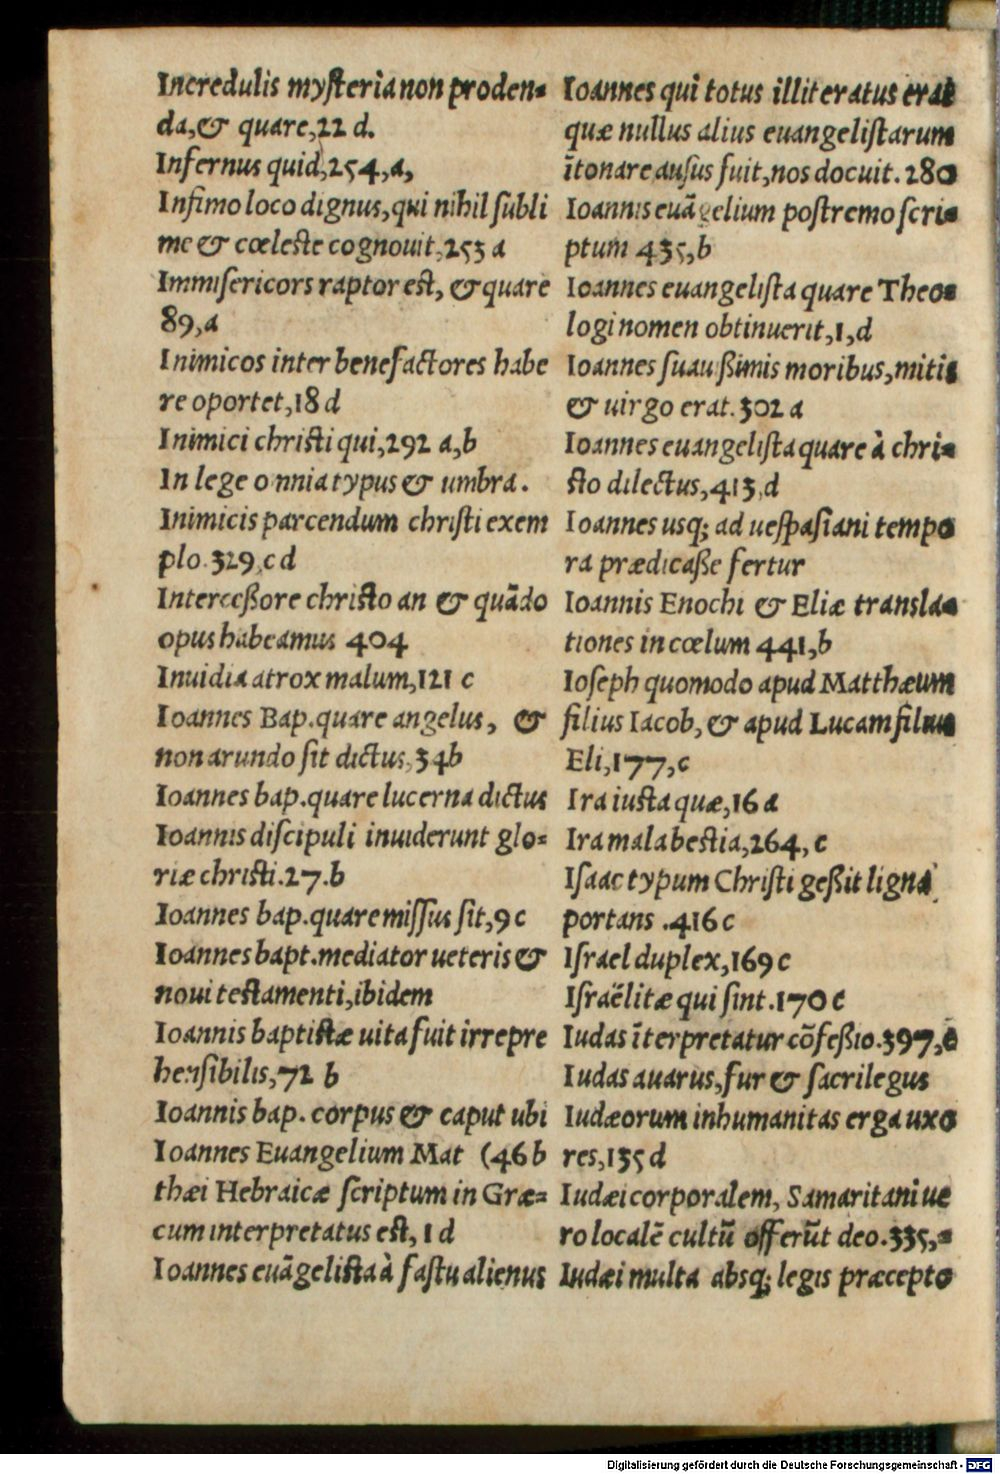 Incredulis mysteria non proden-
da, & quare, 22 d.
Infernus quid, 254, a,
Infimo loco dignus, qui nihil subli
me & cœleste cognouit, 253 a
Immisericors raptor est, & quare
89, a
Inimicos inter benefactores habe
re oportet, 18 d
Inimici christi qui, 292 a, b
In lege omnia typus & umbra.
Inimicis parcendum christi exem
plo. 329, c d
Intercessore christo an & quādo
opus habeamus 404
Inuidia atrox malum, 121 c
Ioannes Bap. quare angelus, &
non arundo sit dictus, 34 b
Ioannes bap. quare lucerna dictus
Ioannis discipuli inuiderunt glo-
riæ christi. 27. b
Ioannes bap. quare missus sit, 9 c
Ioannes bapt. mediator ueteris &
noui testamenti, ibidem
Ioannis baptistæ uita fuit irrepre
hensibilis, 72 b
Ioannis bap. corpus & caput ubi
Ioannes Euangelium Mat (46 b
thæi Hebraicæ scriptum in Græ-
cum interpretatus est, 1 d
Ioannes euāgelista à fastu alienus
Ioannes qui totus illiteratus erat
quæ nullus alius euangelistarum
ītonare ausus fuit, nos docuit. 280
Ioannis euāgelium postremo scri-
ptum 435, b
Ioannes euangelista quare Theo-
logi nomen obtinuerit, 1, d
Ioannes suauissimis moribus, mitis
& uirgo erat. 302 a
Ioannes euangelista quare à chri-
sto dilectus, 413, d
Ioannes usq; ad uespasiani tempo
ra prædicasse fertur
Ioannis Enochi & Eliæ transla-
tiones in cœlum 441, b
Ioseph quomodo apud Matthæum
filius Iacob, & apud Lucam filius
Eli, 177, c
Ira iusta quæ, 16 a
Ira mala bestia, 264, c
Isaac typum Christi gessit ligna
portans . 416 c
Israel duplex, 169 c
Israëlitæ qui sint. 170 c
Iudas īterpretatur cōfessio. 397,
Iudas auarus, fur & sacrilegus
Iudæorum inhumanitas erga uxo
res, 135 d
Iudæi corporalem, Samaritani ue
ro localē cultū offerūt deo. 335,
Iudæi multa absq; legis præcepto
Digitalisierung gefördert durch die Deutsche Forschungsgemeinschaft - DFG